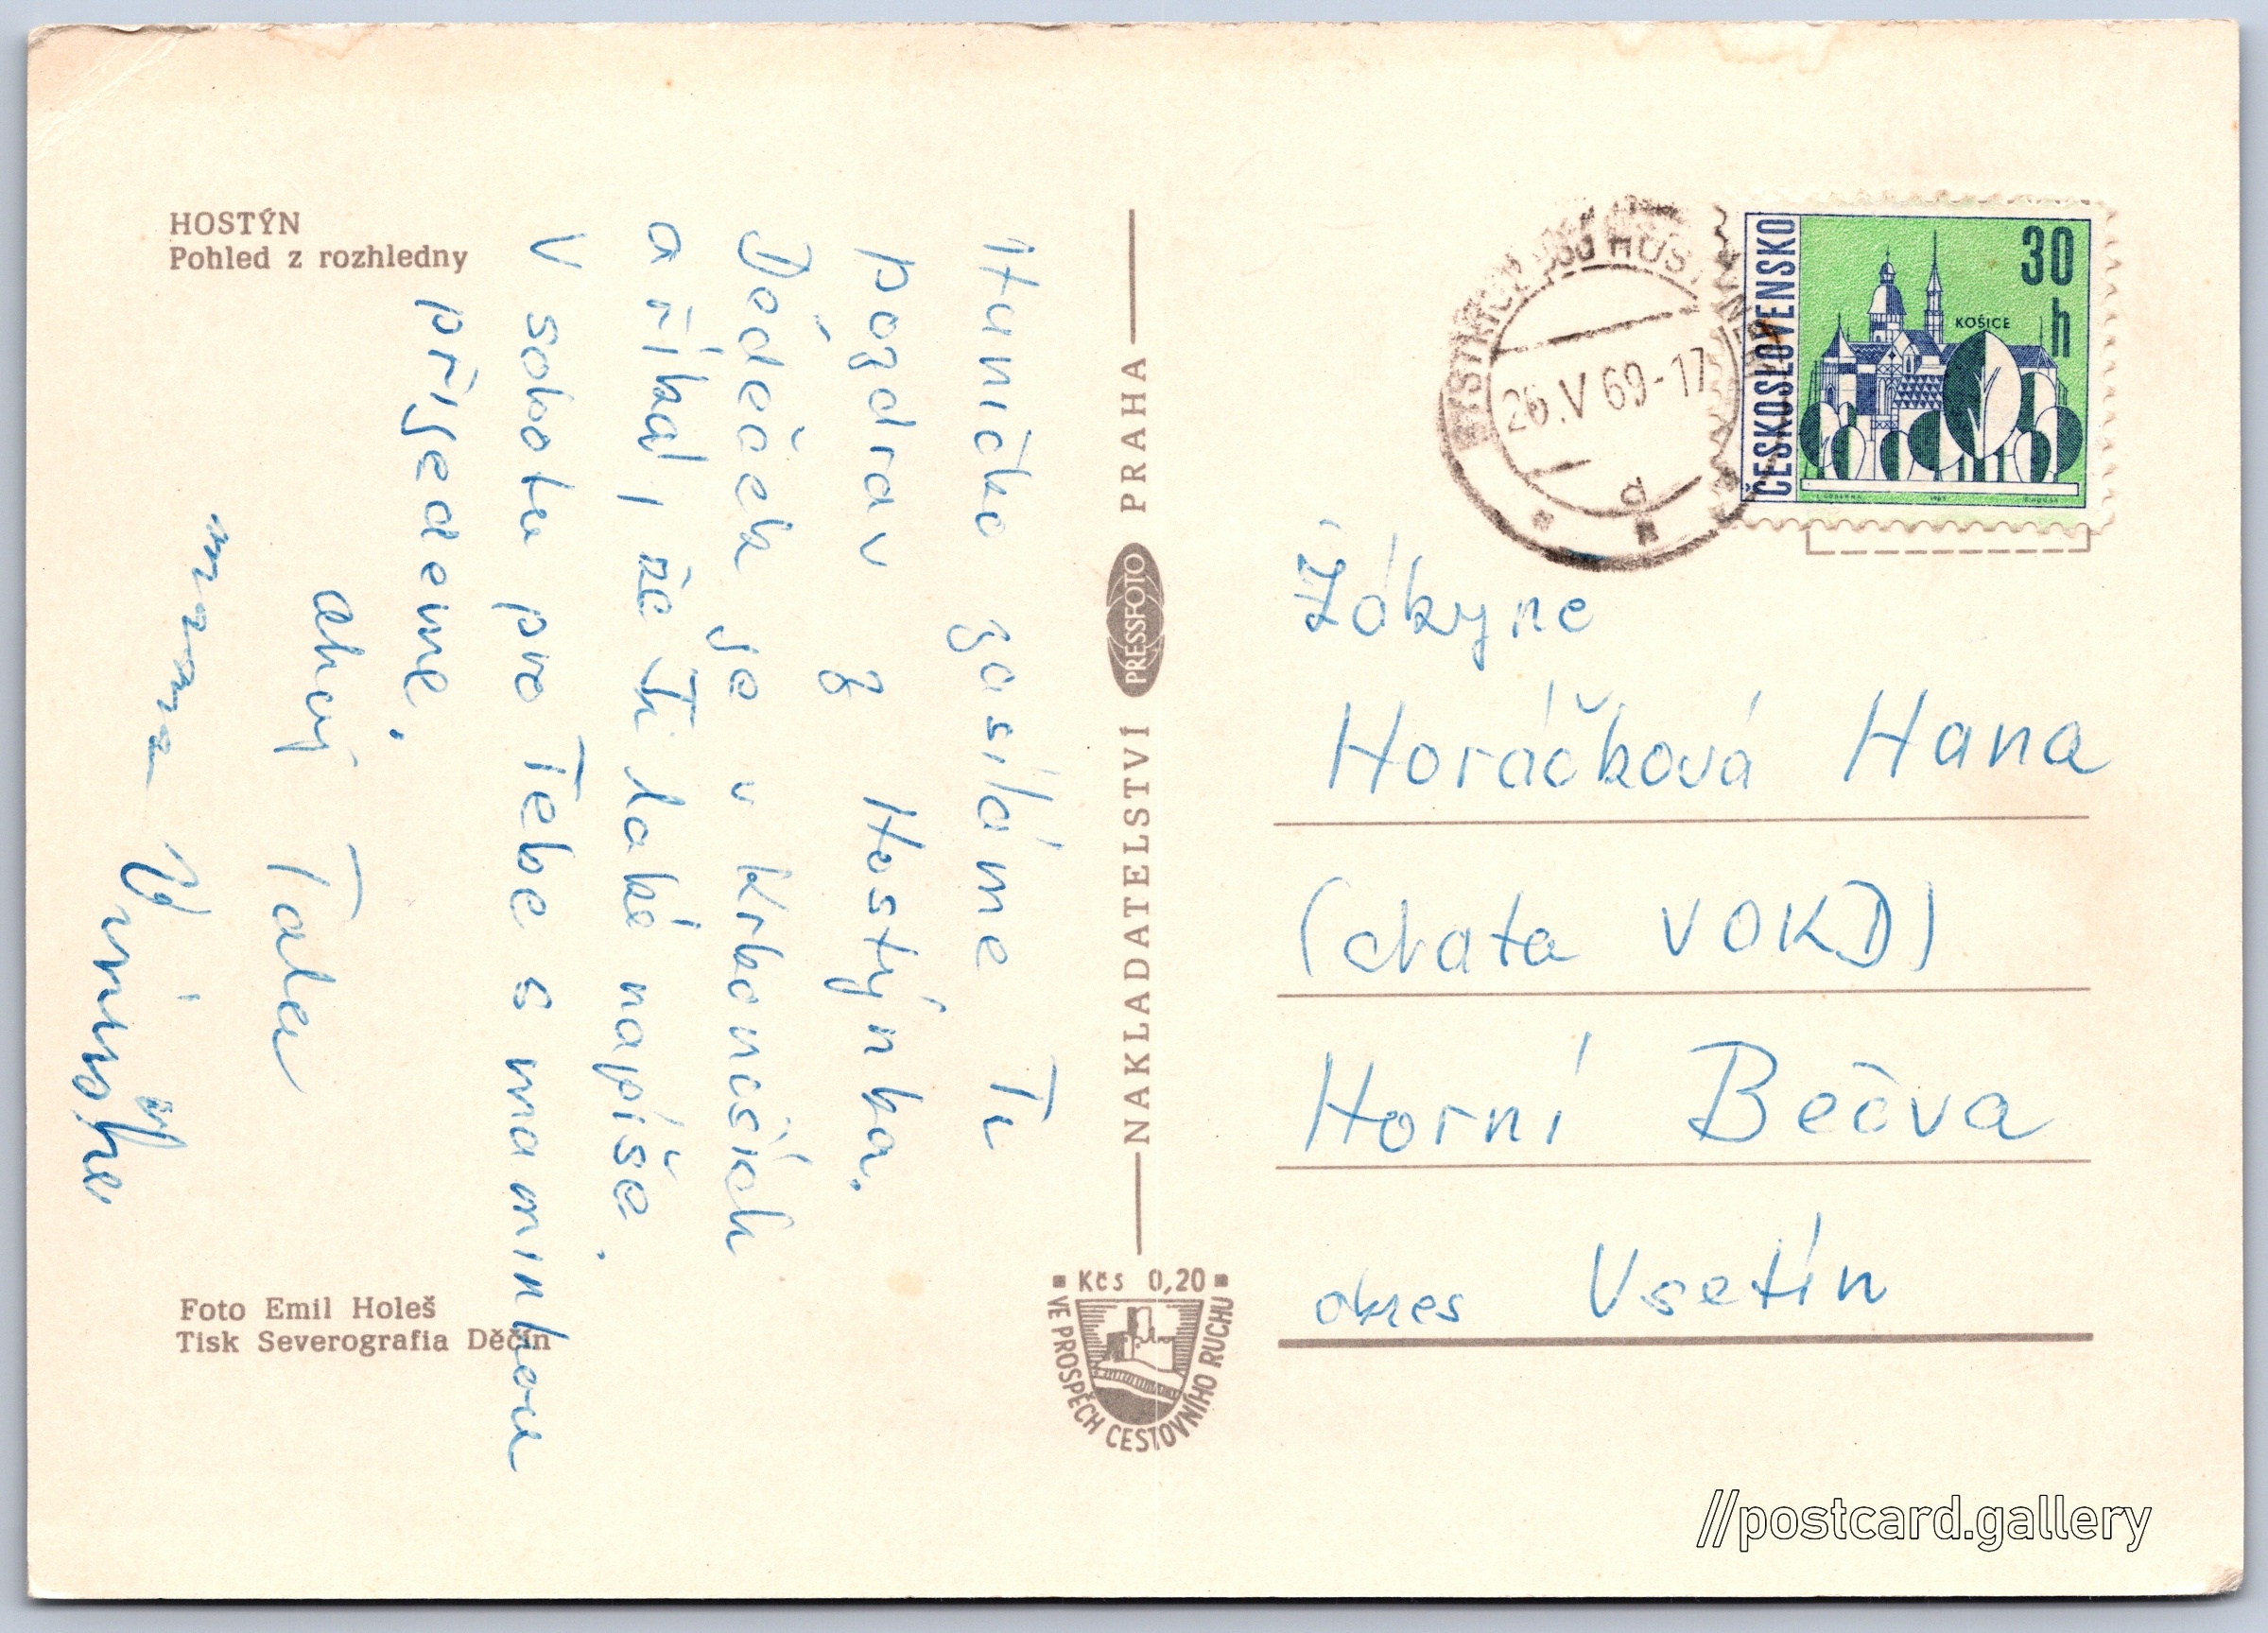 HOSTÝN
Pohled z rozhledny
Haničko zasíláme Ti
pozdrav z Hostýnka.
Dědeček je v Krkonoších
a říkal, že Ti také napíše.
V sobotu pro Tebe s maminkou
přijedeme.
ahoj Táta
Foto Emil Holeš
Tisk Severografia Děčín
NAKLADATELSTVÍ PRESSFOTO PRAHA
Kčs 0,20
VE PROSPĚCH CESTOVNÍHO RUCHU
HOST
26.V 69-17
a
ČESKOSLOVENSKO
30 h
KOŠICE
Žákyně
Horáčková Hana
(chata VOKD)
Horní Bečva
okres Vsetín
//postcard.gallery